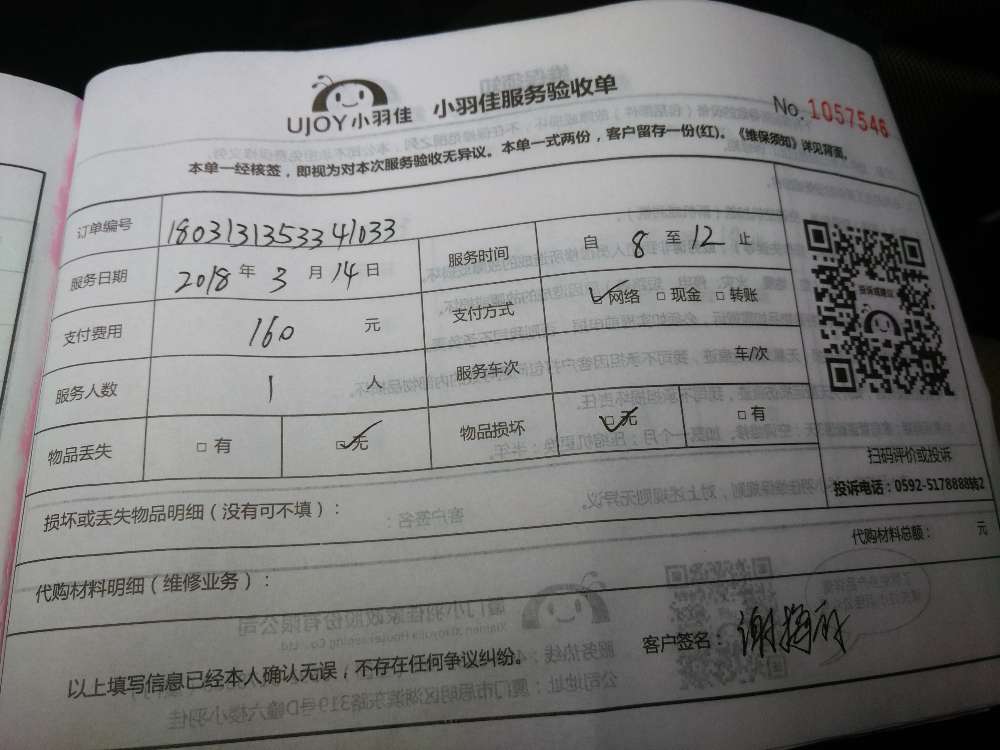 UJOY小羽佳 小羽佳服务验收单
No. 1057546
本单一经核签，即视为对本次服务验收无异议。本单一式两份，客户留存一份(红)。《维保须知》详见背面。
订单编号 18031313533441033
服务日期 2018年3月14日 服务时间 自8至12止
支付费用 160元 支付方式 ☑网络 □现金 □转账
服务人数 1人 服务车次 车/次
物品丢失 □有 ☑无 物品损坏 ☑无 □有
投诉或建议
扫码评价或投诉
投诉电话：0592-5178888转2
损坏或丢失物品明细（没有可不填）：
代购材料明细（维修业务）： 代购材料总额： 元
以上填写信息已经本人确认无误，不存在任何争议纠纷。 客户签名：谢